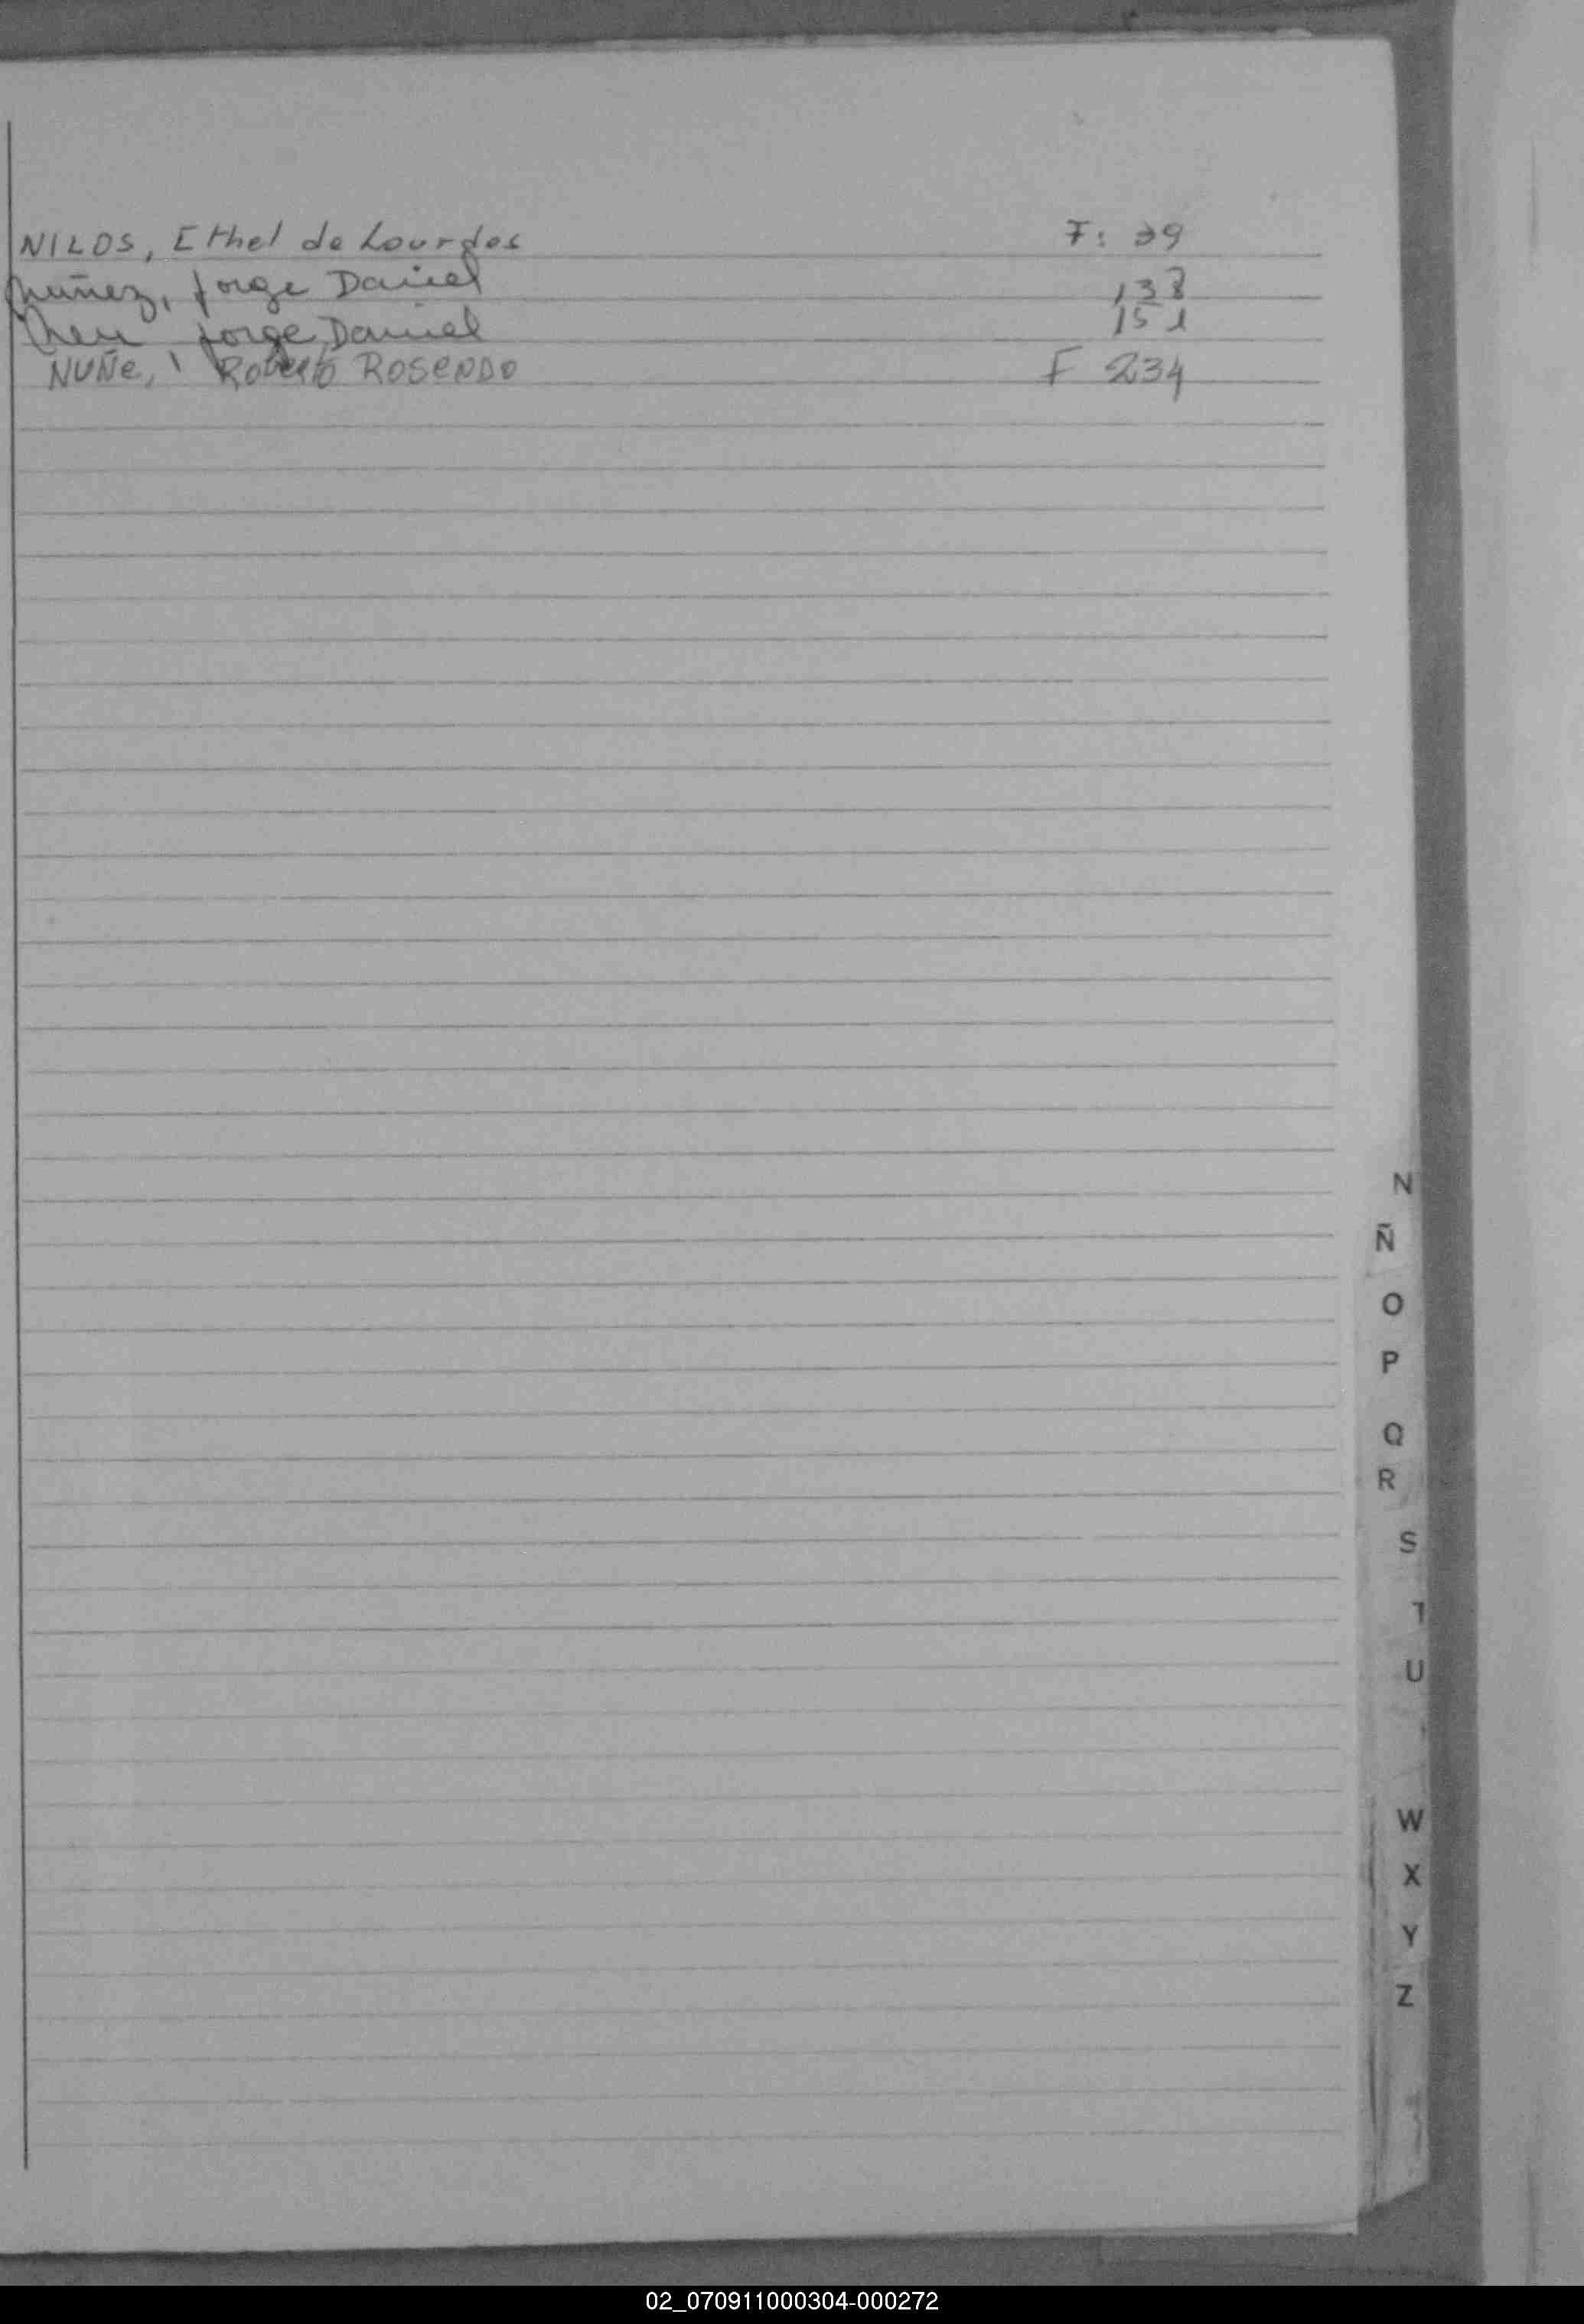 NILOS, Ethel de Lourdes F: 39
Nuñez, Jorge Daniel 138
Jorge Daniel 151
NUÑe, Roberto ROSENDO F 234
N
Ñ
O
P
Q
R
S
T
U
W
X
Y
Z
02_070911000304-000272